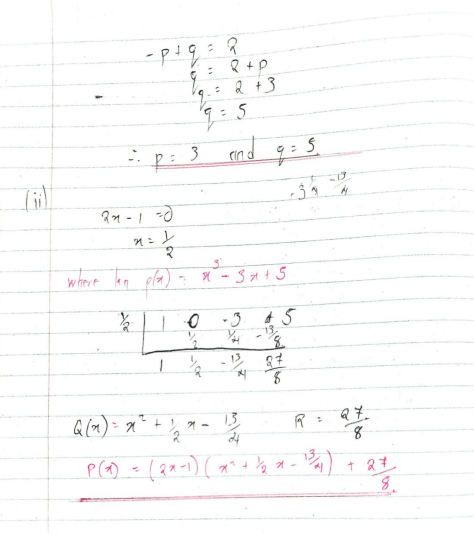 -p + q = 2
q = 2 + p
q = 2 + 3
q = 5
∴ p = 3 and q = 5
(ii)
-3 1/4 -13/4
2x - 1 = 0
x = 1/2
where p(x) = x³ - 3x + 5
1/2 | 1 0 -3 5
1/2 1/4 -13/8
1 1/2 -13/4 27/8
Q(x) = x² + 1/2 x - 13/4 R = 27/8
P(x) = (2x-1)(x² + 1/2 x - 13/4) + 27/8